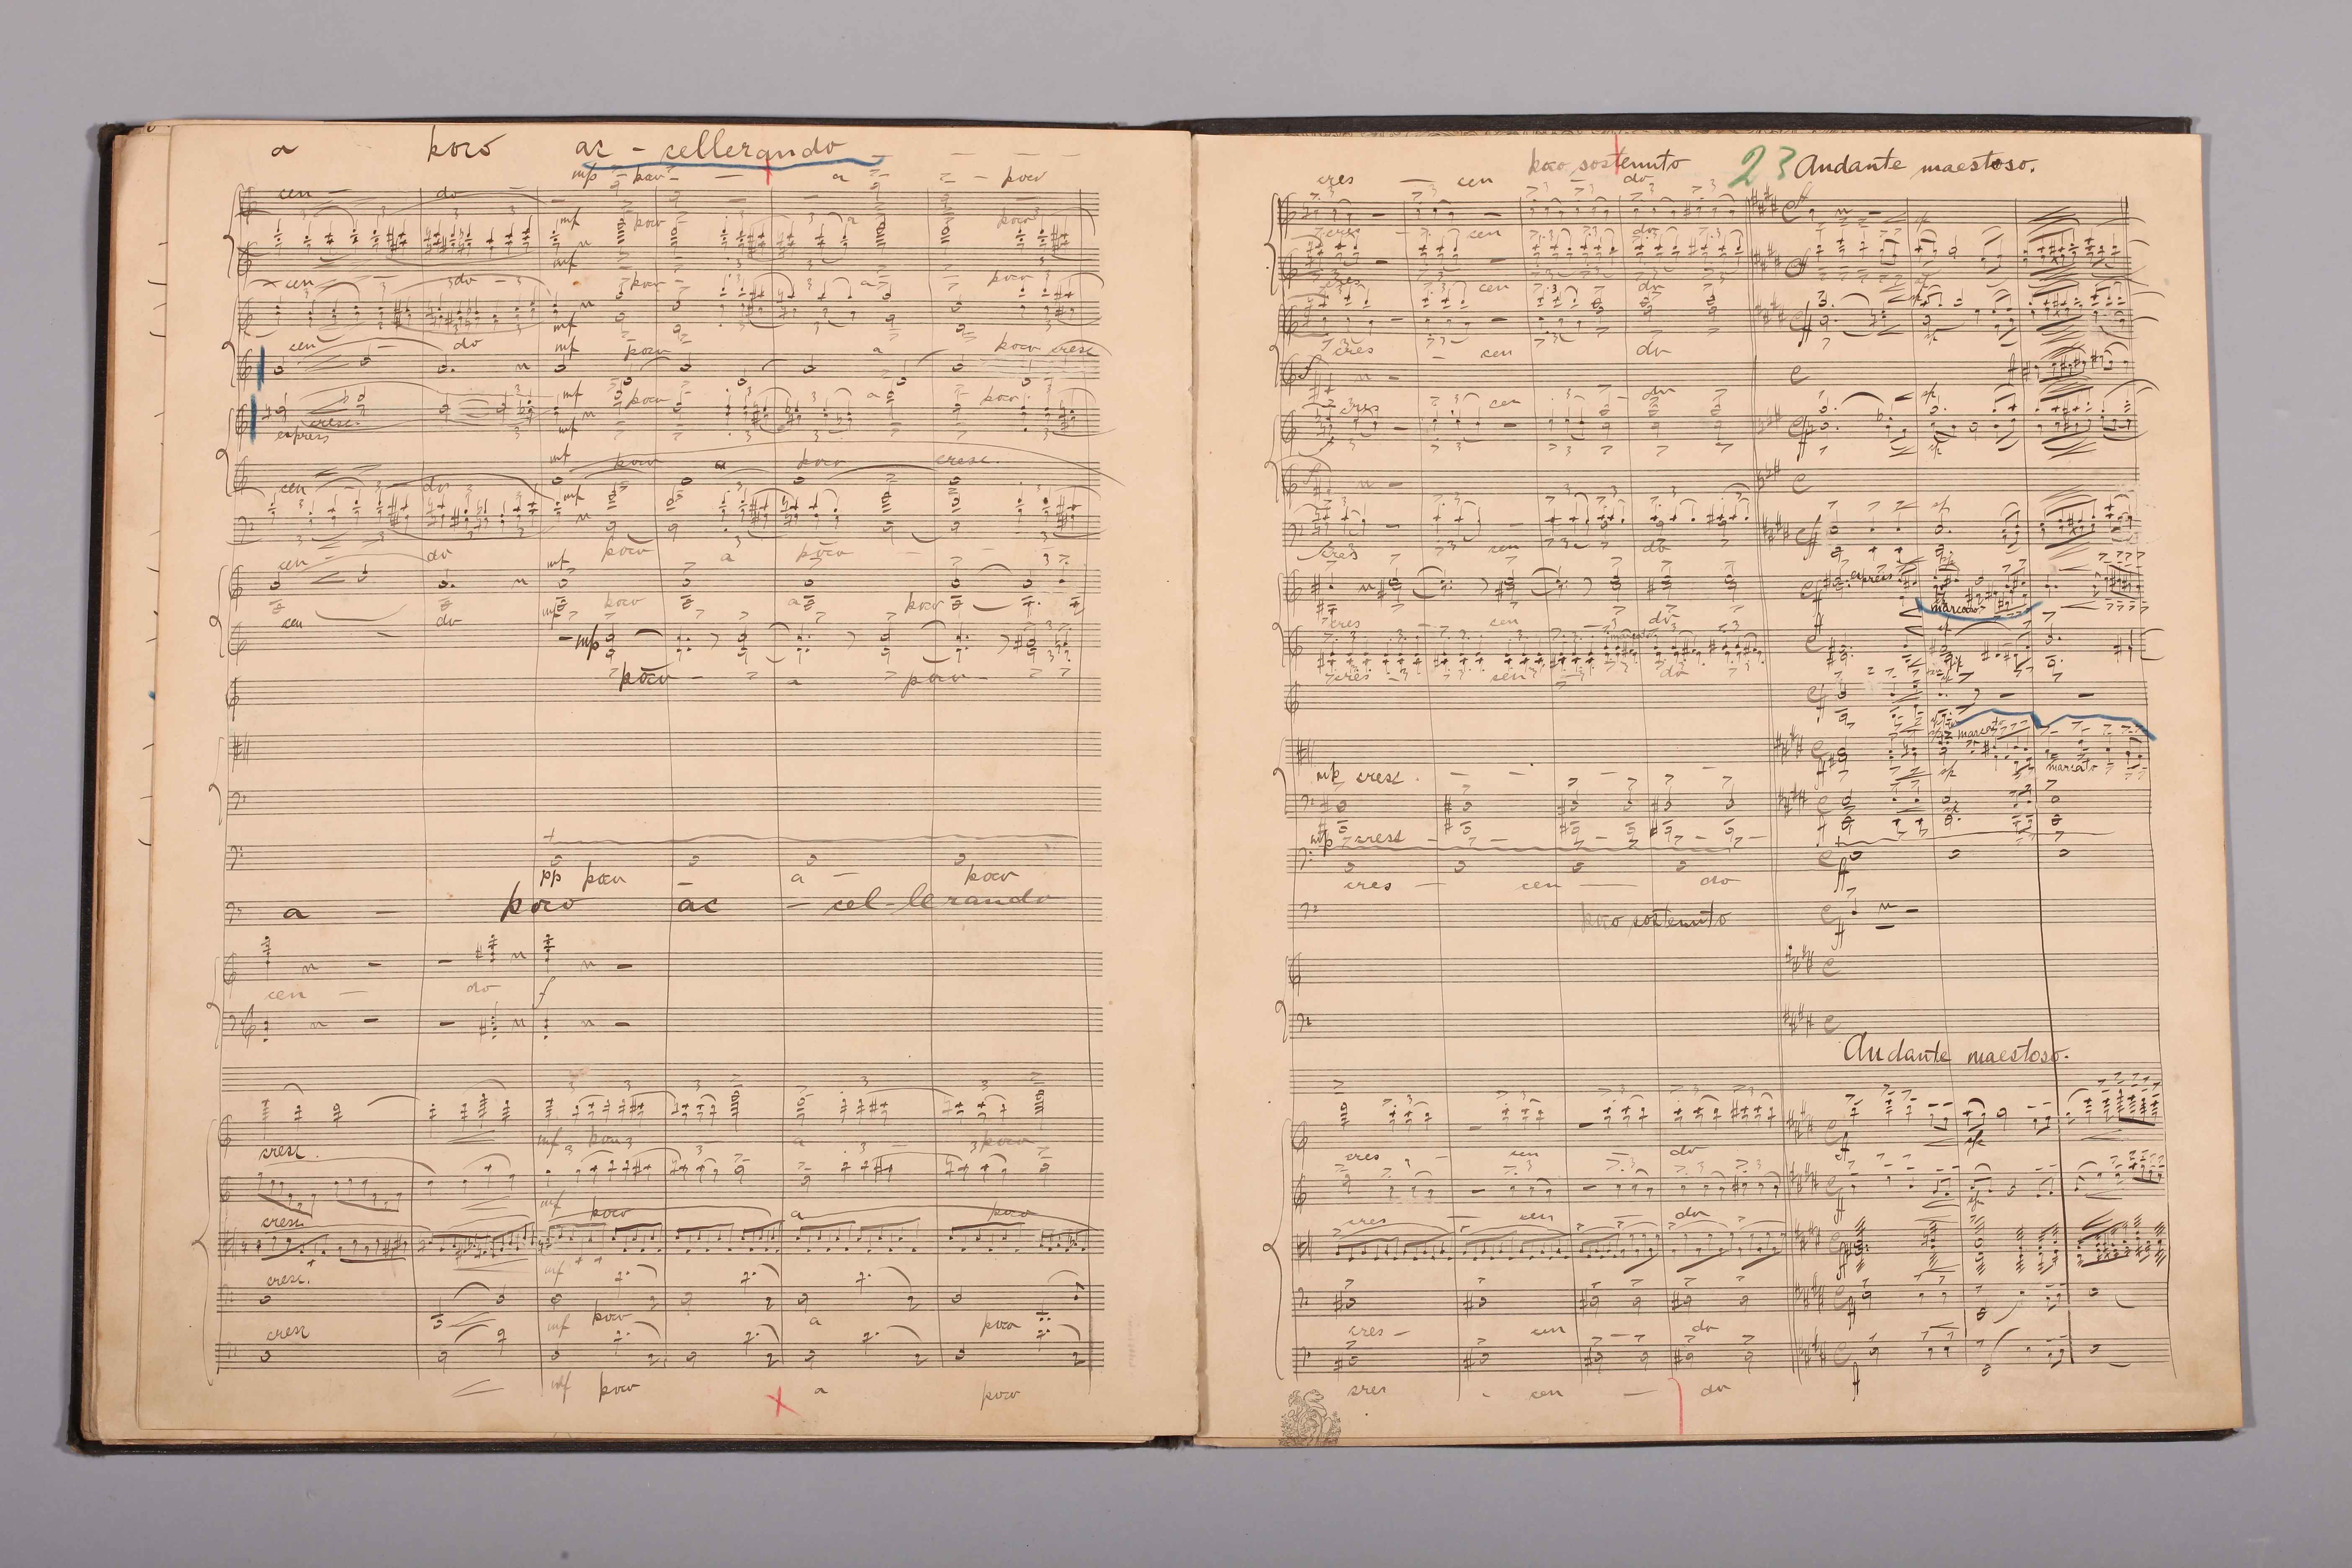 a poco ac - cellerando
mp poco - a - poco
cen - do -
mf poco a poco
mf
cen - do - poco - a poco
mf
mf
cen do mf poco a poco cresc
mf poco a poco
cresc.
express
mf
mf poco a poco cresc.
cen - do mf
cen - do mf poco a poco
cen do mf poco a poco
mp
poco - a poco -
pp poco - a - poco
a - poco ac - cel - lerando
cen - do f
mf poco a poco
cresc.
mf poco a poco
cresc.
mf
cresc.
mf poco a poco
cresc
mf poco a poco
poco sostenuto 23 Andante maestoso.
cres - cen do
cres - cen do
cres cen do
cres - cen do
cres cen do
cres cen do
express
marcato
cres - cen - do
marcato
cres - cen do
marcato
marcato
mp cresc. - - - -
mp cresc - - - - - -
cres - cen - do
ff
poco sostenuto
ff
Andante maestoso.
cres - cen do
ff
cres - cen - do
ff
cres - cen do
ff
cres - cen - do
ff